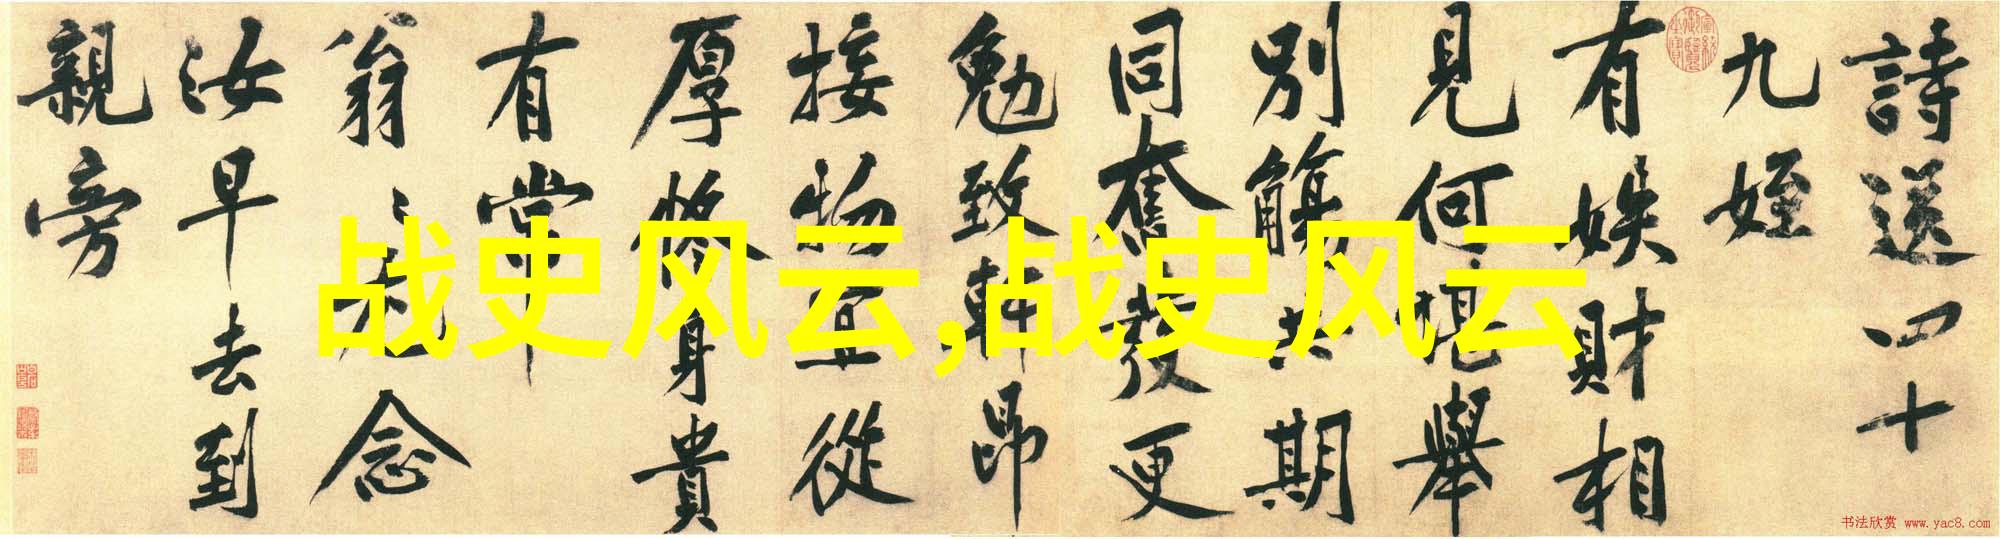 詩送四十
九姪
有娭財相
見何堪舉
別觴共期
同奮發更
勉致軒昂
接物宜從
厚修身貴
有常
翁念
汝早去到
親旁
战史风云,战史风云
书法欣赏 www.yac8.com